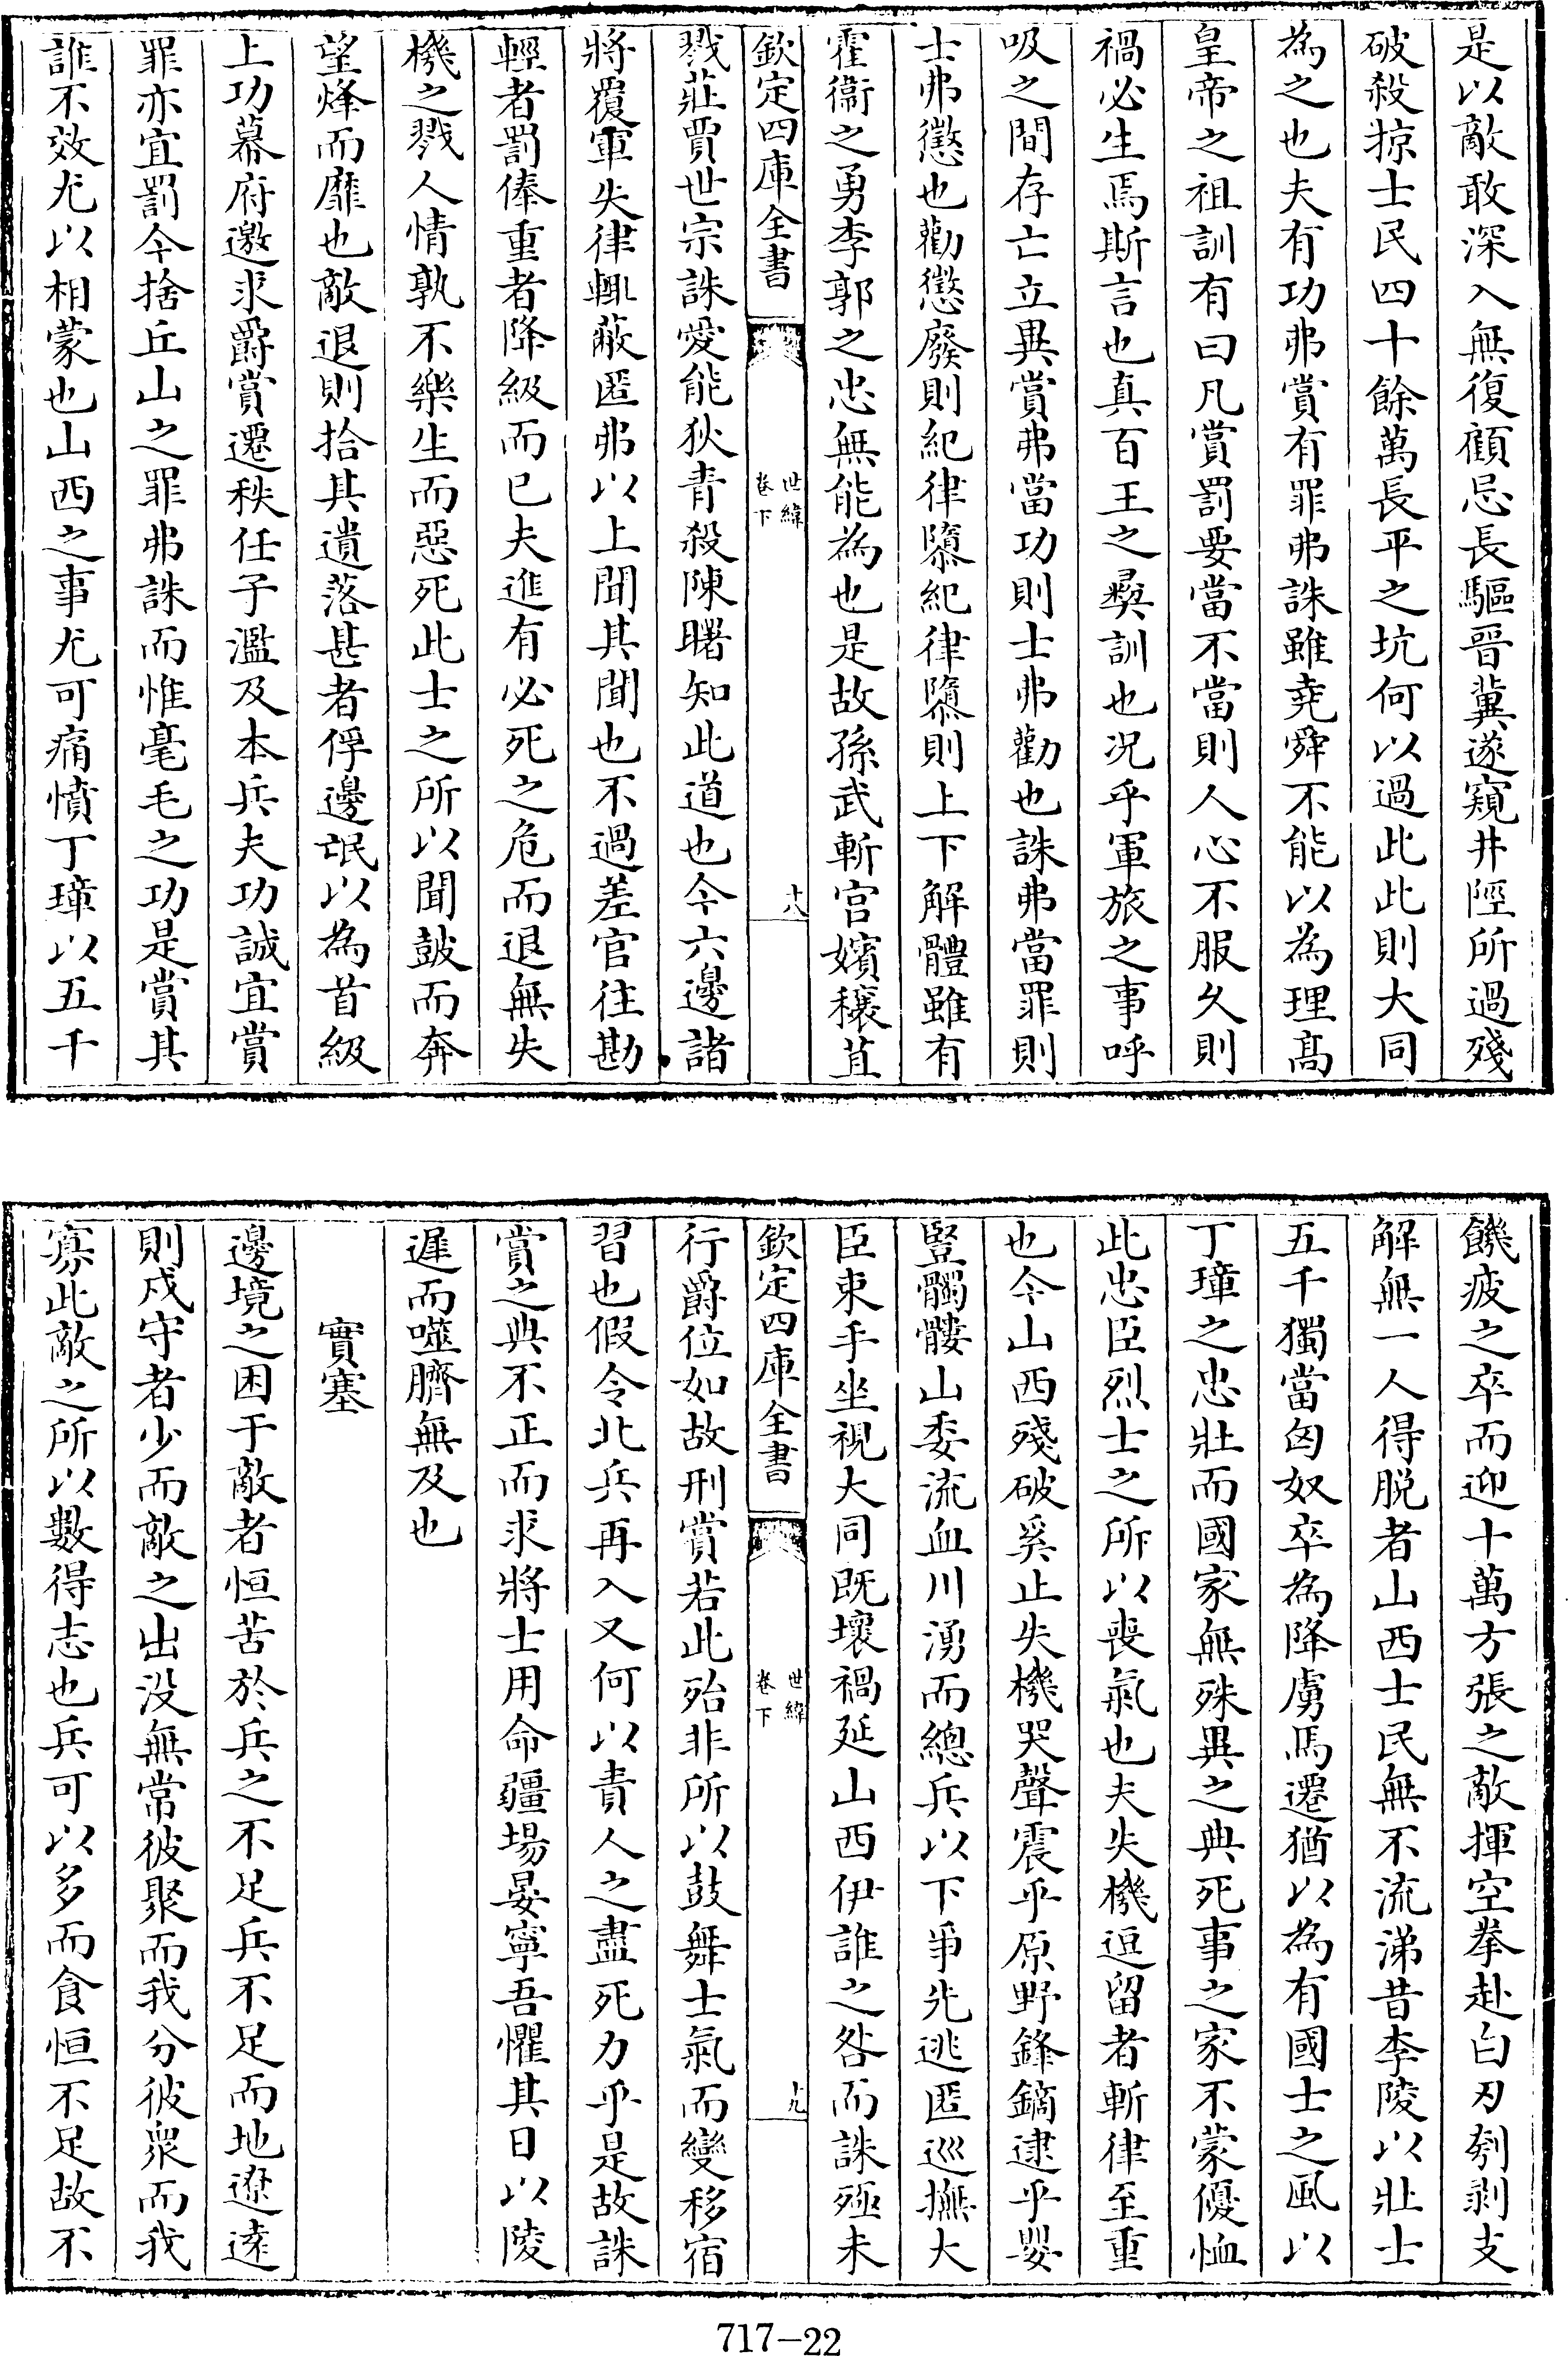 是以敵敢深入無復顧忌長驅晉冀遂窺井陘所過殘
破殺掠士民四十餘萬長平之坑何以過此此則大同
為之也夫有功弗賞有罪弗誅雖堯舜不能以為理髙
皇帝之祖訓有曰凡賞罰要當不當則人心不服久則
禍必生焉斯言也真百王之彜訓也况乎軍旅之事呼
吸之間存亡立異賞弗當功則士弗勸也誅弗當罪則
士弗懲也勸懲廢則紀律隳紀律隳則上下解體雖有
霍衞之勇李郭之忠無能為也是故孫武斬宫嬪穰苴
欽定四庫全書
世緯
卷下
十八
戮莊賈世宗誅愛能狄青殺陳曙知此道也今六邊諸
將覆軍失律輒蔽匿弗以上聞其聞也不過差官往勘
輕者罰俸重者降級而已夫進有必死之危而退無失
機之戮人情孰不樂生而惡死此士之所以聞鼓而奔
望烽而靡也敵退則拾其遺落甚者俘邊氓以為首級
上功幕府邀求爵賞遷秩任子濫及本兵夫功誠宜賞
罪亦宜罰今捨丘山之罪弗誅而惟毫毛之功是賞其
誰不效尤以相蒙也山西之事尤可痛憤丁璋以五千
饑疲之卒而迎十萬方張之敵揮空拳赴白刃刳剥支
解無一人得脱者山西士民無不流涕昔李陵以壯士
五千獨當匈奴卒為降虜馬遷猶以為有國士之風以
丁璋之忠壯而國家無殊異之典死事之家不蒙優恤
此忠臣烈士之所以喪氣也夫失機逗留者斬律至重
也今山西殘破奚止失機哭聲震乎原野鋒鏑逮乎嬰
豎髑髏山委流血川湧而總兵以下爭先逃匿巡撫大
臣束手坐視大同既壞禍延山西伊誰之咎而誅殛未
欽定四庫全書
世緯
卷下
十九
行爵位如故刑賞若此殆非所以鼓舞士氣而變移宿
習也假令北兵再入又何以責人之盡死力乎是故誅
賞之典不正而求將士用命疆場晏寧吾懼其日以陵
遲而噬臍無及也
實塞
邊境之困于敵者恒苦於兵之不足兵不足而地遼逺
則戍守者少而敵之出没無常彼聚而我分彼衆而我
寡此敵之所以數得志也兵可以多而食恒不足故不
717-22